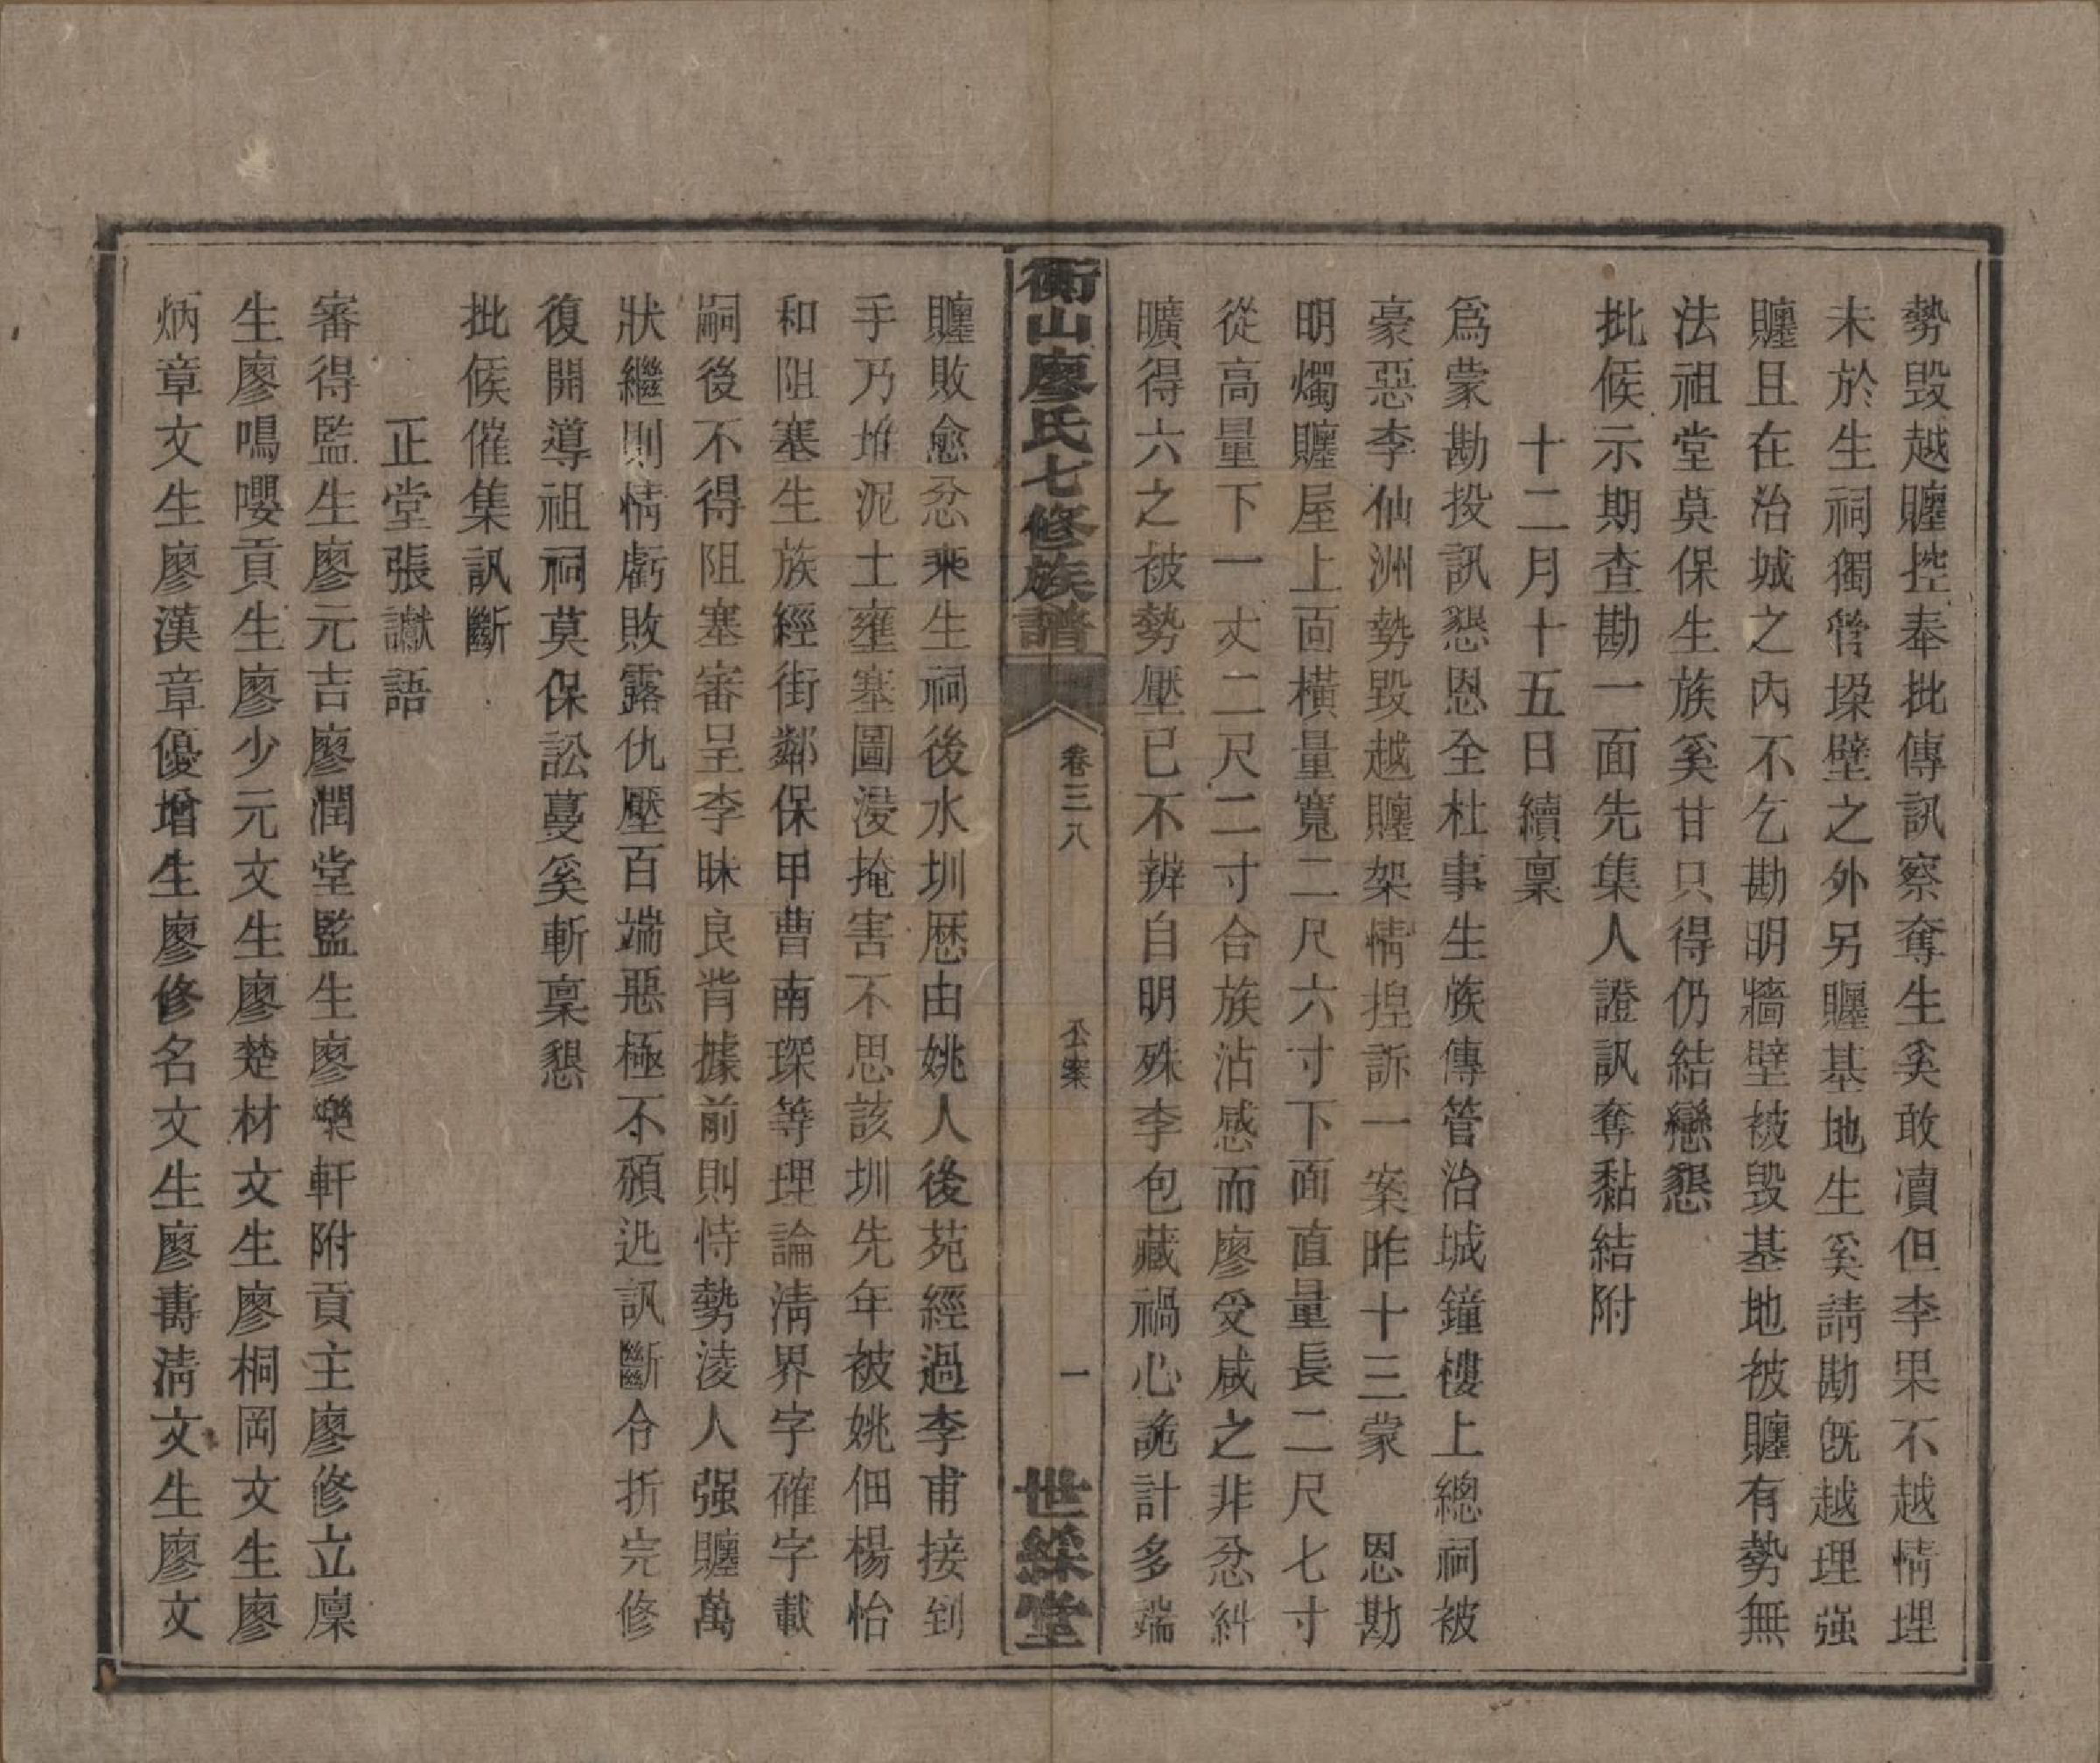 勢毀越贜控奉批傳訊察奪生奚敢凟但李果不越情理
未於生祠獨管琛壁之外另贜基地生奚請勘旣越理强
贜且在治城之內不乞勘明牆壁被毀基地被贜有勢無
法祖堂莫保生族奚甘只得仍結戀懇
批候示期查勘一面先集人證訊奪黏結附
十二月十五日續稟
爲蒙勘投訊懇恩全杜事生族傳管治城鐘樓上總祠被
豪惡李仙洲勢毀越贜架情揑訴一案昨十三蒙　恩勘
明燭贜屋上面橫量寬二尺六寸下面直量長二尺七寸
從高量下一丈二尺二寸合族沾感而廖受咸之非忿糾
曠得六之被勢壓已不辨自明殊李包藏禍心詭計多端
衡山廖氏七修族譜
卷三八
公案
一
世綵堂
贜敗愈忿乘生祠後水圳歷由姚人後苑經過李甫接到
手乃堆泥土壅塞圖浸掩害不思該圳先年被姚佃楊怡
和阻塞生族經街鄰保甲曹南琛等理論淸界字確字載
嗣後不得阻塞審呈李昧良背據前則恃勢淩人强贜萬
狀繼則情虧敗露仇壓百端惡極不頒迯訊斷令折完修
復開導祖祠莫保訟蔓奚斬稟懇
批候催集訊斷
正堂張讞語
審得監生廖元吉廖潤堂監生廖樂軒附貢主廖修立廩
生廖鳴嚶貢生廖少元文生廖楚材文生廖桐岡文生廖
炳章文生廖漢章優增生廖修名文生廖壽淸文生廖文